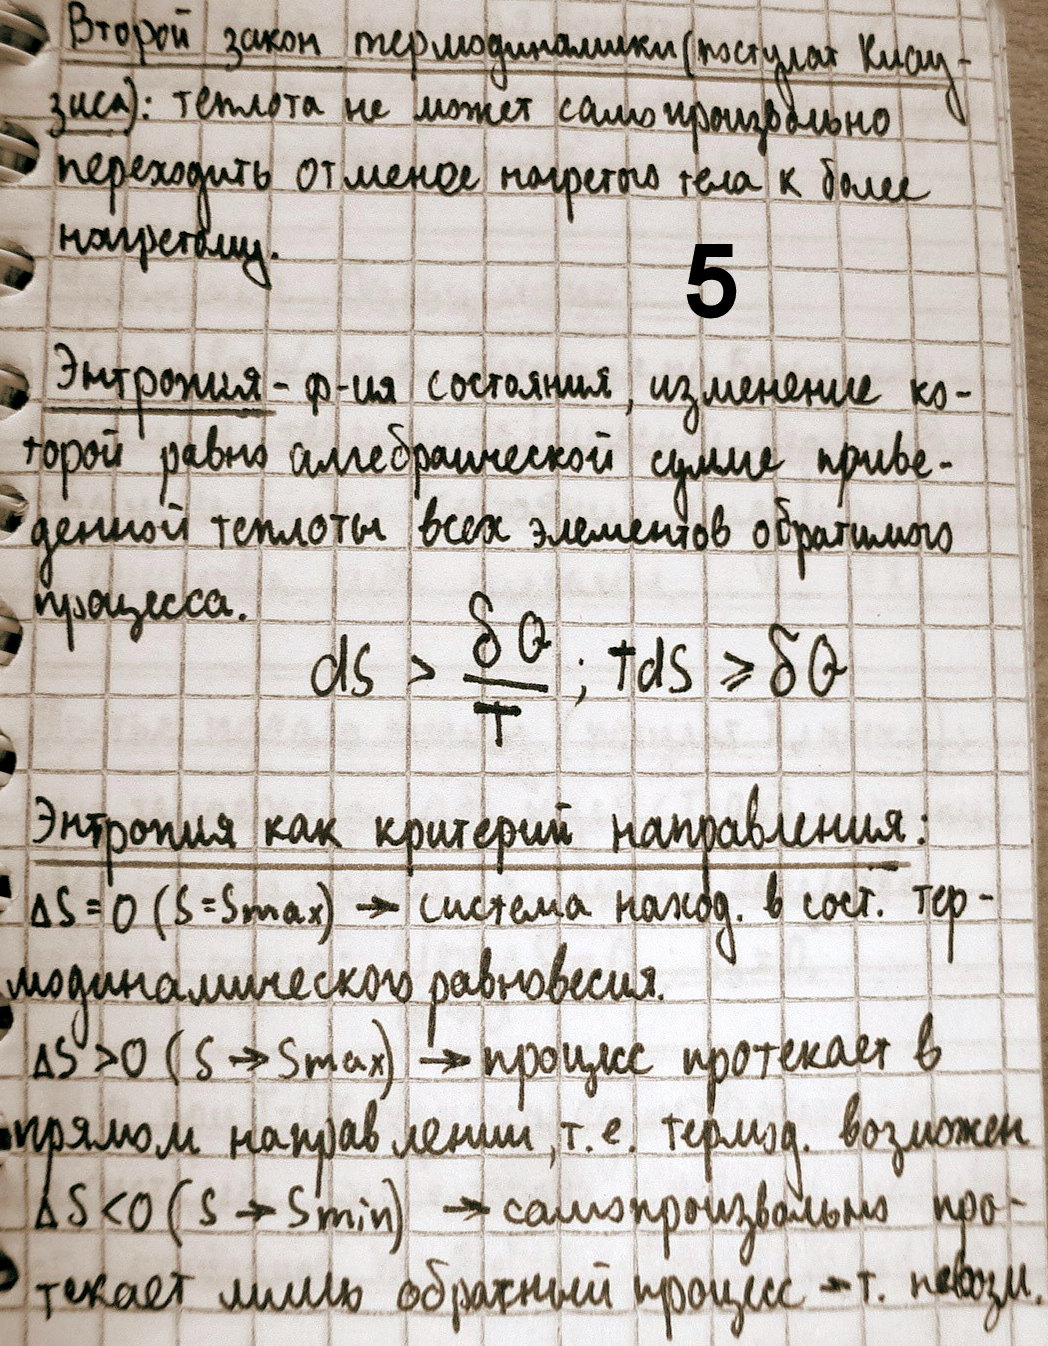 Второй закон термодинамики (постулат Клау-
зиса): теплота не может самопроизвольно
переходить от менее нагретого тела к более
нагретому.
5
Энтропия - ф-ия состояния, изменение ко-
торой равно алгебраической сумме приве-
денной теплоты всех элементов обратимого
процесса.
dS > δQ/T ; TdS ⩾ δQ
Энтропия как критерий направления:
ΔS = 0 (S = Smax) → система наход. в сост. тер-
модинамического равновесия.
ΔS > 0 (S → Smax) → процесс протекает в
прямом направлении, т.е. термод. возможен
ΔS < 0 (S → Smin) → самопроизвольно про-
текает лишь обратный процесс - т. невозм.